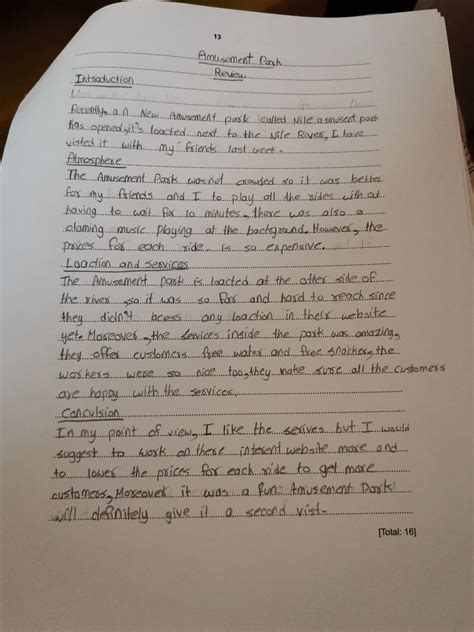 13
Amusement Park
Review
Introduction
Recently, a n New Amusement park called Nile amusment park
has opened, it's loacted next to the Nile River, I have
visted it with my friends last week.
Atmosphere
The Amusement Park was not crowded so it was better
for my friends and I to play all the rides with out
having to wait for 10 minutes, there was also a
claming music playing at the background. However, the
prices for each ride is so expensive.
Loaction and services
The Amusement park is loacted at the other side of
the river, so it was so far and hard to reach since
they didn't acess any loaction in their website
yet. Moreover, the services inside the park was amazing,
they offer customers free water and free snackes, the
workers were so nice too, they make sure all the customers
are happy with the services.
Conculsion
In my point of view, I like the serives but I would
suggest to work on there interent website more and
to lower the prices for each ride to get more
customers, Moreover it was a fun Amusement Park
will definitely give it a second vist.
[Total: 16]